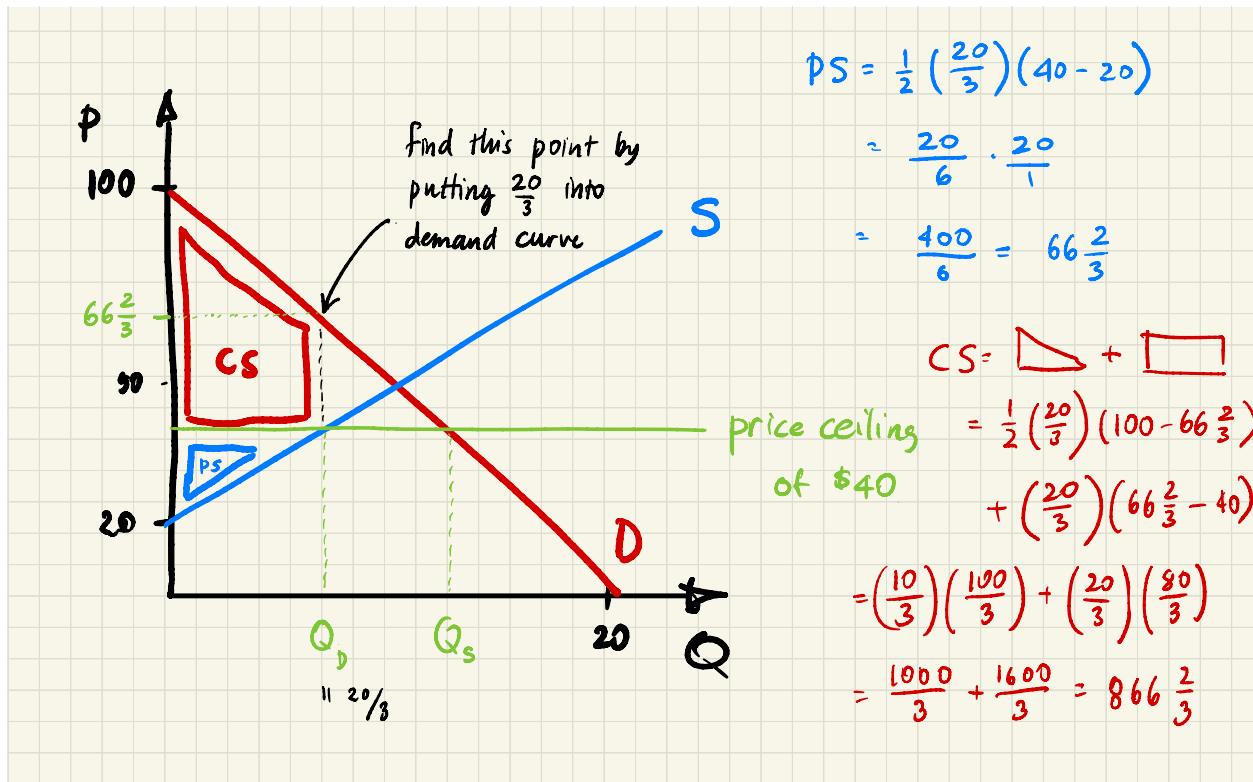 P
100
66 2/3
90
20
find this point by
putting 20/3 into
demand curve
S
CS
PS
price ceiling
of $40
D
Q_D
Q_S
20
Q
" 20/3
PS = 1/2 (20/3)(40 - 20)
= 20/6 · 20/1
= 400/6 = 66 2/3
CS = +
= 1/2 (20/3)(100 - 66 2/3)
+ (20/3)(66 2/3 - 40)
= (10/3)(100/3) + (20/3)(80/3)
= 1000/3 + 1600/3 = 866 2/3